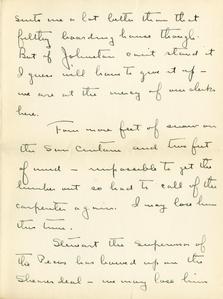 suits me a lot better than that
filthy boarding house though.
But if Johnston can't stand it
I guess will have to give it up -
we are at the mercy of our clerks
here.
Four more feet of snow on
the San and two feet
of mud - impossible to get the
lumber out so had to call off the
carpenter again. I may lose him
this time.
Stewart the Supervisor of
the Pecos has up on the
deal - we may lose him